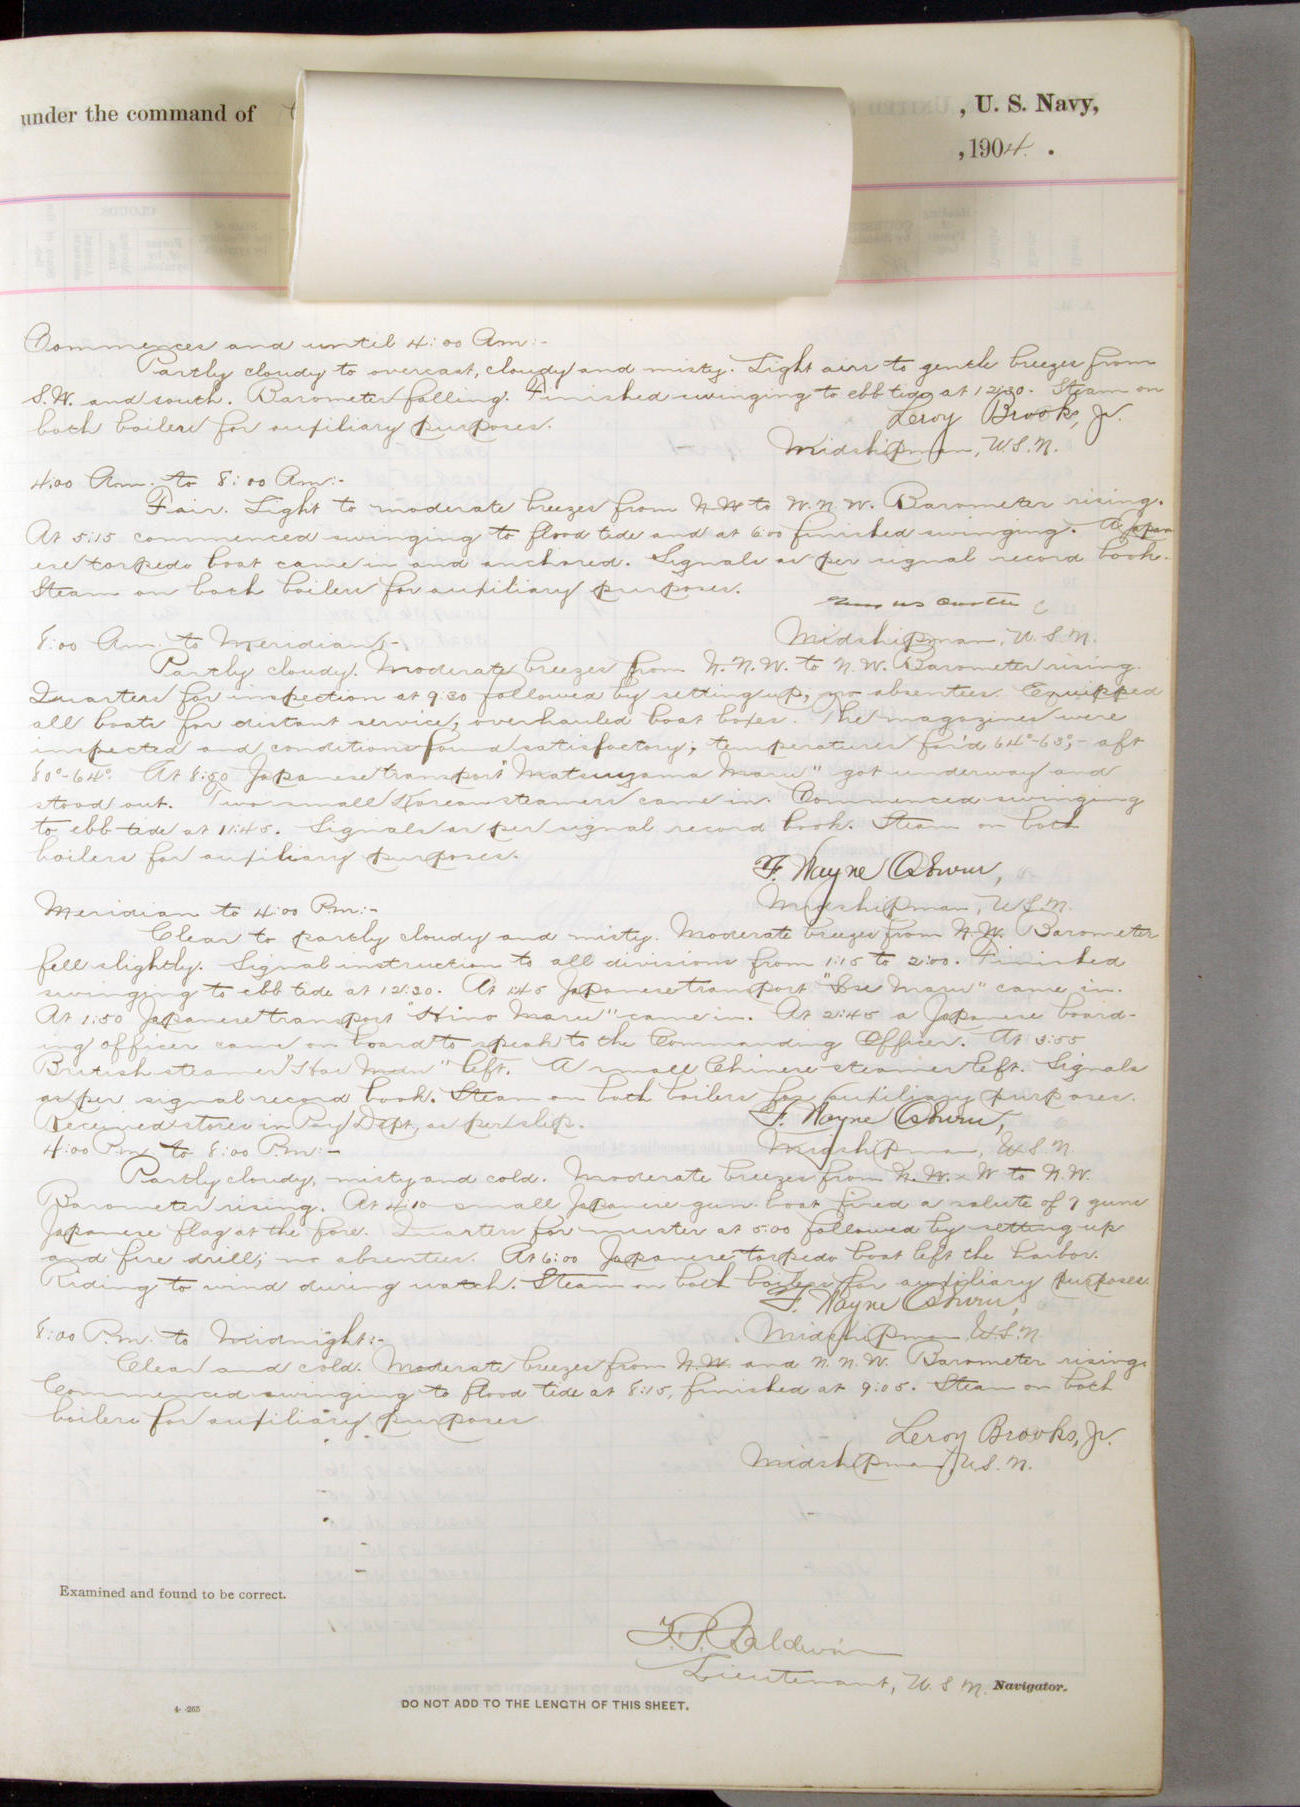 under the command of
, U. S. Navy,
, 1904.
Commences and until 4:00 Am:-
Partly cloudy to overcast, cloudy and misty. Light airs to gentle breezes from
S.W. and south. Barometer falling. Finished swinging to ebb tide at 12:30. Steam on
both boilers for auxiliary purposes.
Leroy Brooks, Jr.
Midshipman, U.S.N.
4:00 Am. to 8:00 Am:-
Fair. Light to moderate breezes from N.W. to W.N.W. Barometer rising.
At 5:15 commenced swinging to flood tide and at 6:00 finished swinging. A Japan
ese torpedo boat came in and anchored. Signals as per signal record book.
Steam on both boilers for auxiliary purposes.
Midshipman, U.S.N.
8:00 Am. to Meridian:-
Partly cloudy. Moderate breezes from N.N.W. to N.W. Barometer rising.
Quarters for inspection at 9:30 followed by setting up, no absentees. Equipped
all boats for distant service; overhauled boat boxes. The magazines were
inspected and conditions found satisfactory; temperatures for'd 64°-63°,- aft
80°-64°. At 8:50 Japanese transport "Matsuyama Maru" got underway and
stood out. Two small Korean steamers came in. Commenced swinging
to ebb tide at 11:45. Signals as per signal record book. Steam on both
boilers for auxiliary purposes.
F. Wayne Osburn,
Midshipman, U.S.N.
Meridian to 4:00 Pm:-
Clear to partly cloudy and misty. Moderate breezes from N.W. Barometer
fell slightly. Signal instruction to all divisions from 1:15 to 2:00. Finished
swinging to ebb tide at 12:30. At 1:45 Japanese transport "Ise Maru" came in.
At 1:50 Japanese transport "Hino Maru" came in. At 2:45 a Japanese board-
ing officer came on board to speak to the Commanding Officer. At 3:55
British steamer left. A small Chinese steamer left. Signals
as per signal record book. Steam on both boilers for auxiliary purposes.
Received stores in Pay Dept, as per slip.
F. Wayne Osburn,
Midshipman, U.S.N.
4:00 Pm. to 8:00 P.m:-
Partly cloudy, misty and cold. Moderate breezes from N.W. x W to N.W.
Barometer rising. At 4:10 small Japanese gun boat fired a salute of 7 guns
Japanese flag at the fore. Quarters for muster at 5:00 followed by setting up
and fire drill; no absentees. At 6:00 Japanese torpedo boat left the harbor.
Riding to wind during watch. Steam on both boilers for auxiliary purposes.
F. Wayne Osburn,
Midshipman U.S.N.
8:00 P.m. to Midnight:-
Clear and cold. Moderate breezes from N.W. and N.N.W. Barometer rising.
Commenced swinging to flood tide at 8:15, finished at 9:05. Steam on both
boilers for auxiliary purposes
Leroy Brooks, Jr.
Midshipman, U.S.N.
Examined and found to be correct.
F. P. Baldwin
Lieutenant, U.S.N. Navigator.
4-265
DO NOT ADD TO THE LENGTH OF THIS SHEET.